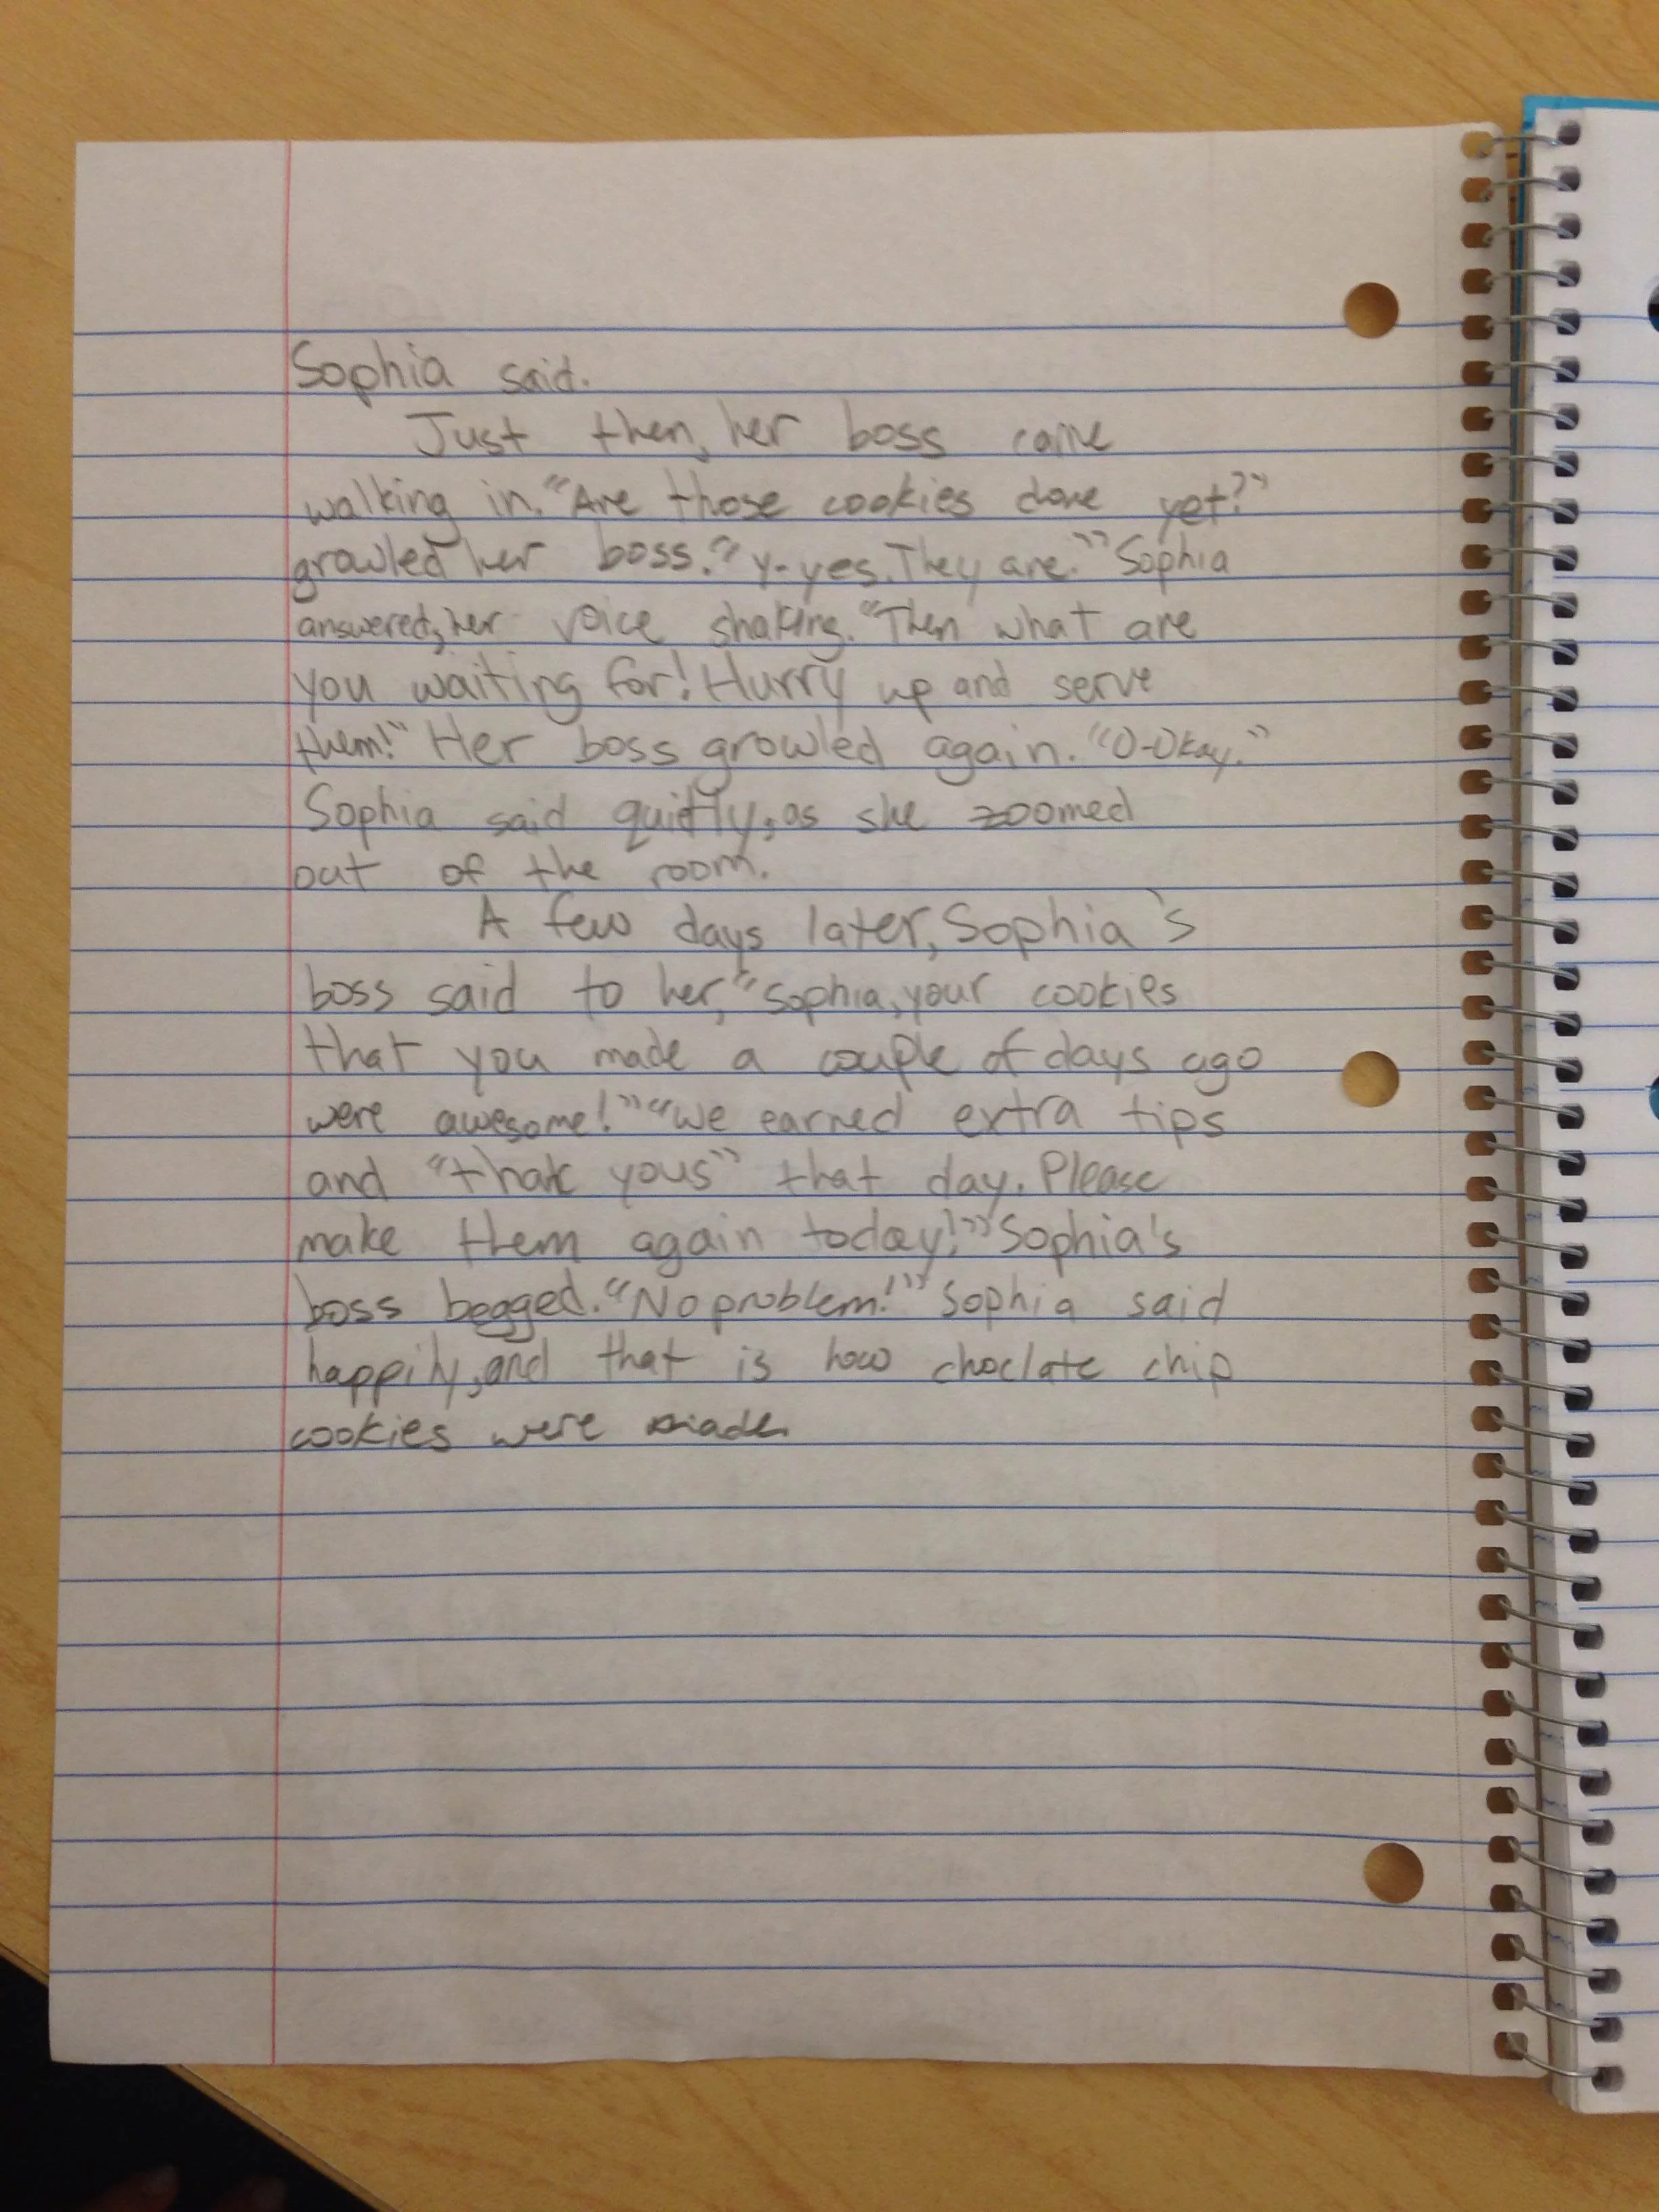 Sophia said.
Just then, her boss came
walking in. "Are those cookies done yet?"
growled her boss. "Y-yes. They are." Sophia
answered, her voice shaking. "Then what are
you waiting for! Hurry up and serve
them!" Her boss growled again. "O-Okay."
Sophia said quietly, as she zoomed
out of the room.
A few days later, Sophia's
boss said to her, "Sophia, your cookies
that you made a couple of days ago
were awesome!" "We earned extra tips
and "thank yous" that day. Please
make them again today!" Sophia's
boss begged. "No problem!" Sophia said
happily, and that is how choclate chip
cookies were made.